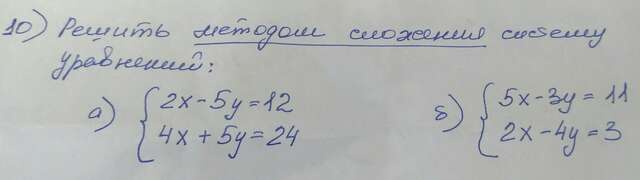 10) Решить методом сложения систему
уравнений:
а) { 2x-5y=12
4x+5y=24
б) { 5x-3y=11
2x-4y=3